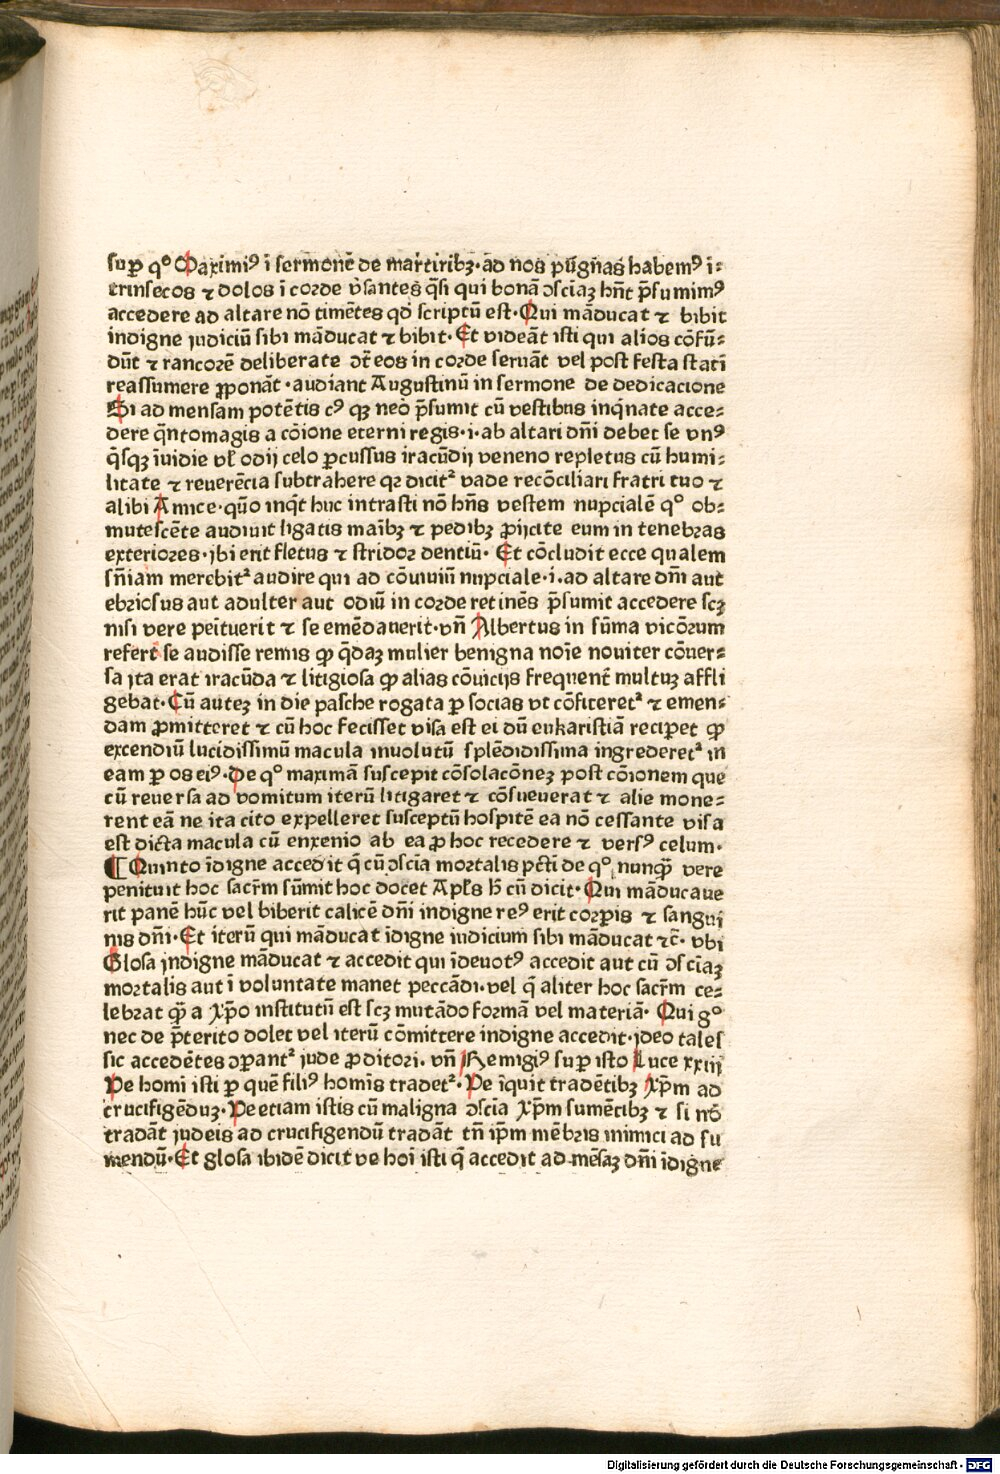 sup̄ q° Maximꝰ ī sermone de martiribꝫ · ad nos pugnas habemꝰ ī⸗
trinsecos ⁊ dolos ī corde v̄santes q̄si qui bonā ↄsciaꝫ hn̄t p̄sumimꝰ
accedere ad altare nō timētes qd̄ scriptū est · Qui māducat ⁊ bibit
indigne iudiciū sibi māducat ⁊ bibit · Et videāt isti qui alios cōfū⸗
dūt ⁊ rancorē deliberate ↄt̄ eos in corde seruāt vel post festa stati
reassumere ꝓponāt · audiant Augustinū in sermone de dedicacione
Si ad mensam potētis cꝰ qꝫ neo p̄sumit cū vestibus inq̄nate acce⸗
dere q̄ntomagis a cōione eterni regis · i · ab altari dn̄i debet se vnꝰ
q̄sqꝫ īuidie vl̄ odij celo ꝑcussus iracūdij veneno repletus cū humi⸗
litate ⁊ reuerēcia subtrahere qꝛ dicit᷑ vade recōciliari fratri tuo ⁊
alibi Amice · quō inqͥt huc intrasti nō hn̄s vestem nupcialē q° ob⸗
mutescēte audiuit ligatis maībꝫ ⁊ pedibꝫ ꝓijcite eum in tenebras
exteriores · jbi erit fletus ⁊ stridor dentiū · Et cōcludit ecce qualem
sn̄iam merebit᷑ audire qui ad cōuiuiū nupciale · i · ad altare dn̄i aut
ebriosus aut adulter aut odiū in corde retinēs p̄sumit accedere scꝫ
nisi vere peītuerit ⁊ se emēdauerit · vn̄ Albertus in sūma vicōrum
refert se audisse remis ꝙ q̄daꝫ mulier benigna noīe nouiter cōuer⸗
sa jta erat iracūda ⁊ litigiosa ꝙ alias cōuicijs frequent̄ multuꝫ affli
gebat · Cū auteꝫ in die pasche rogata ꝑ socias vt cōficeret᷑ ⁊ emen⸗
dam ꝓmitteret ⁊ cū hoc fecisset visa est ei dū eukaristiā recipet ꝙ
excendiū lucidissimū macula inuolutū splēdidissima ingrederet᷑ in
eam ꝑ os eiꝰ · De q° maximā suscepit cōsolacōneꝫ post cōionem que
cū reuersa ad vomitum iterū litigaret ⁊ cōsueuerat ⁊ alie mone⸗
rent eā ne ita cito expelleret susceptū hospitē ea nō cessante visa
est dicta macula cū enxenio ab ea ꝓ hoc recedere ⁊ versꝰ celum ·
¶ Quinto īdigne accedit q̄ cū ↄscīa mortalis pcti de q° nunqꝙ̄ vere
penituit hoc sacr̄m sūmit hoc docet Apl̄s h̄ cū dicit · Qui māducaue
rit panē hūc vel biberit calicē dn̄i indigne reꝰ erit corpis ⁊ sangui
nis dn̄i · Et iterū qui māducat īdigne iudicium sibi māducat ⁊c̄ · vbi
Glosa jndigne māducat ⁊ accedit qui īdeuotꝰ accedit aut cū ↄscīaꝫ
mortalis aut ī voluntate manet peccādi · vel q̄ aliter hoc sacr̄m ce⸗
lebrat q̄ꝫ a xp̄o institutū est scꝫ mutādo formā vel materiā · Qui g°
nec de p̄terito dolet vel iterū cōmittere indigne accedit · jdeo tales
sic accedētes ↄꝑant᷑ jude ꝓditori · vn̄ Remigiꝰ sup isto Luce xxiij
Ve homi isti ꝑ quē filiꝰ homīs tradet᷑ · Ve īquit tradētibꝫ xp̄m ad
crucifigēduꝫ · Ve etiam istis cū maligna ↄscīa xp̄m sumētibꝫ ⁊ si nō
tradāt judeis ad crucifigendū tradāt tn̄ ip̄m mēbris inimici ad su
mendū · Et glosa ibidē dicit ve hoī isti q̄ accedit ad mēsaꝫ dn̄i īdigne
Digitalisierung gefördert durch die Deutsche Forschungsgemeinschaft · DFG